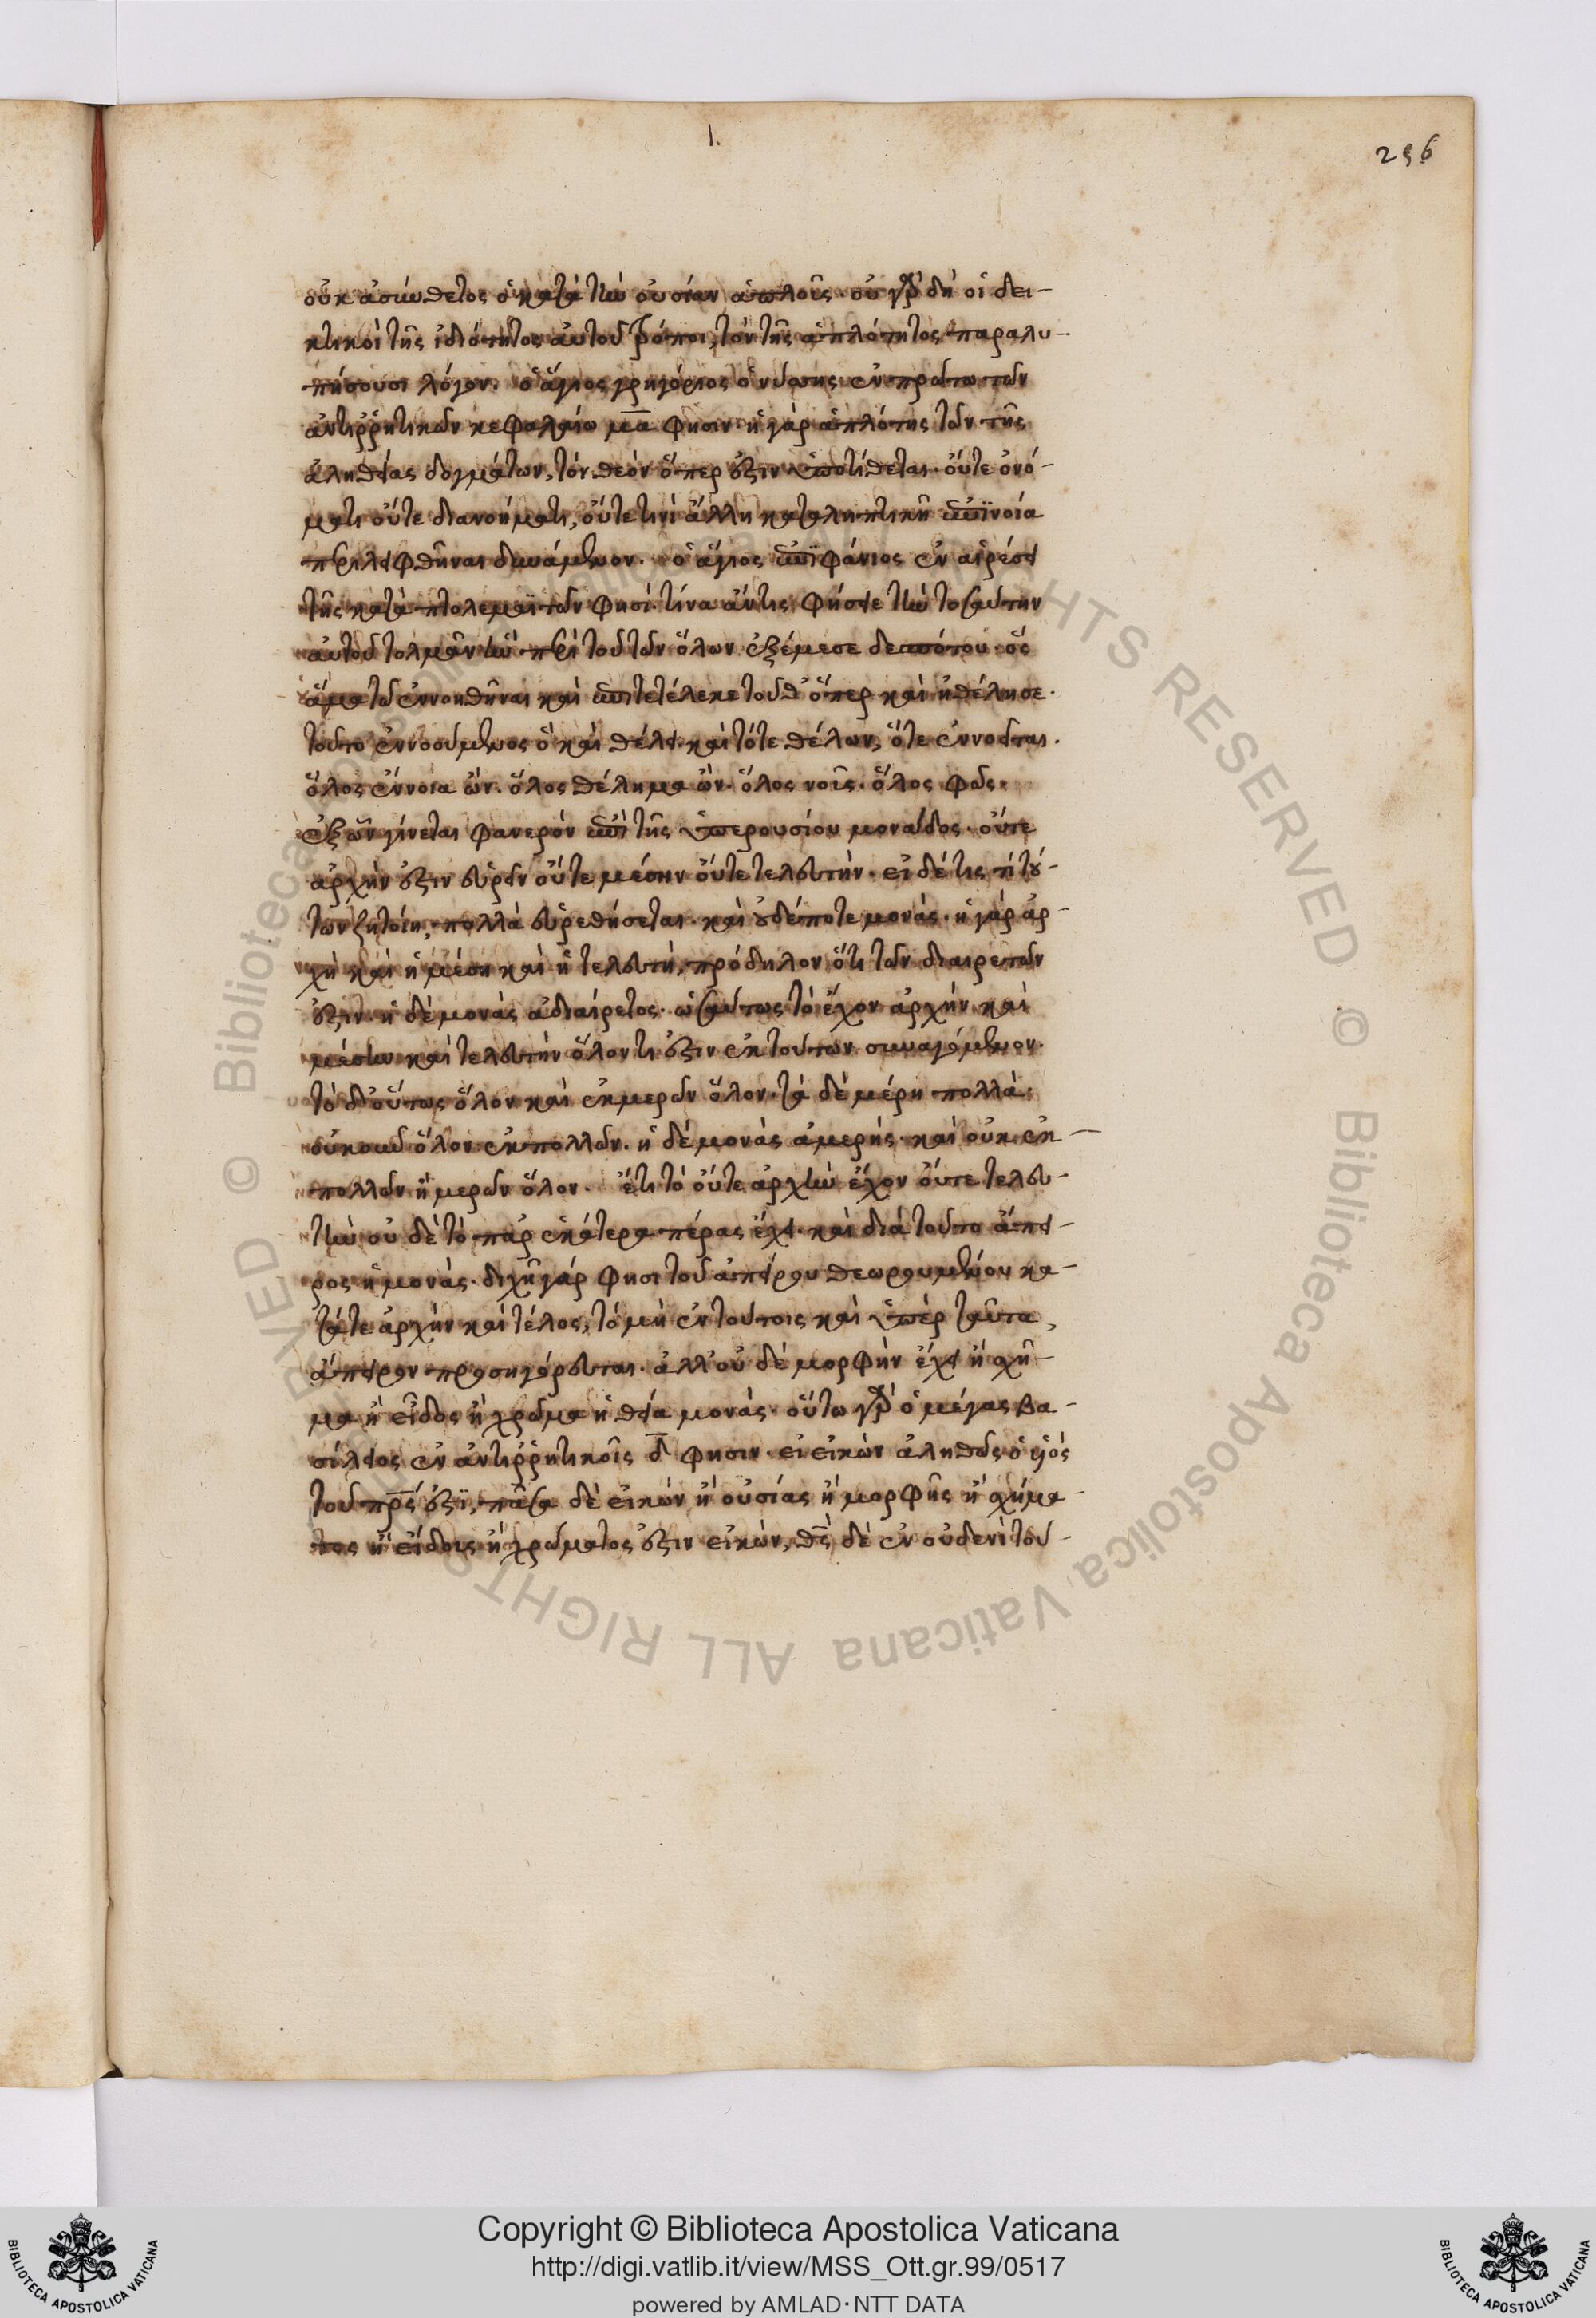 1.
296
οὐκ ἀσύνθετος ὁ κατὰ τὴν οὐσίαν ἁπλοῦς· οὐ γὰρ δὴ οἱ δει-
κτικοὶ τῆς ἰδιότητος αὐτοῦ τρόποι, τὸν τῆς ἁπλότητος παραλυ-
πήσουσι λόγον. ὁ ἅγιος γρηγόριος ὁ νύσης ἐν πρώτω τῶν
ἀντιρρητικῶν κεφαλαίω μα φησιν· ἡ γὰρ ἁπλότης τῶν τῆς
ἀληθείας δογμάτων, τὸν θεὸν ὅπερ ἐστὶν ὑποτίθεται· οὔτε ὀνό-
ματι οὔτε διανοήματι, οὔτε τινὶ ἄλλη καταληπτικῆ ἐπινοία
περιληφθῆναι δυνάμενον. ὁ ἅγιος ἐπιφάνιος ἐν αἱρέσει
τῆς κατὰ πτολεμαϊτῶν φησί· τίνα ἄν τις φήσειε τὴν τοσαύτην
αὐτοῦ τολμᾶν ἣν περὶ τοῦ τῶν ὅλων ἐξέμεσε δεσπότου· ὃς
ἅμα τῶ ἐννοηθῆναι καὶ ἐπιτετέλεκε τοῦθ' ὅπερ καὶ ἠθέλησε·
τοῦτο ἐννοούμενος ὃ καὶ θέλει· καὶ τότε θέλων, ὅτε ἐννοεῖται·
ὅλος ἔννοια ὤν· ὅλος θέλημα ὤν· ὅλος νοῦς· ὅλος φῶς·
ἐξ ὧν γίνεται φανερὸν ἐπὶ τῆς ὑπερουσίου μονάδος· οὔτε
ἀρχὴν ἔστιν εὑρεῖν οὔτε μέσην οὔτε τελευτήν· εἰ δέ τις τὶ τού-
των ζητοίη, πολλὰ εὑρεθήσεται· καὶ οὐδέποτε μονάς· ἡ γὰρ ἀρ-
χὴ καὶ ἡ μέση καὶ ἡ τελευτή, πρόδηλον ὅτι τῶν διαιρετῶν
ἐστιν· ἡ δὲ μονὰς ἀδιαίρετος· ὡσαύτως τὸ ἔχον ἀρχὴν καὶ
μέσην καὶ τελευτὴν ὅλον τι ἐστιν ἐκ τούτων συναγόμενον·
τὸ δ' οὕτως ὅλον καὶ ἐκ μερῶν ὅλον· τὰ δὲ μέρη πολλά·
οὐκοῦν ὅλον ἐκ πολλῶν· ἡ δὲ μονὰς ἀμερής· καὶ οὐκ ἐκ
πολλῶν ἢ μερῶν ὅλον. ἔτι τὸ οὔτε ἀρχὴν ἔχον οὔτε τελευ-
τὴν οὐδὲ τὸ παρ' ἑκάτερα πέρας ἔχει· καὶ διὰ τοῦτο ἄπει-
ρος ἡ μονάς· διχῆ γάρ φησι τοῦ ἀπείρου θεωρουμένου κα-
τά τε ἀρχὴν καὶ τέλος, τὸ μὴ ἐν τούτοις καὶ ὑπὲρ ταῦτα,
ἄπειρον προσηγόρευται· ἀλλ' οὐδὲ μορφὴν ἔχει ἢ σχῆ-
μα ἢ εἶδος ἢ χρῶμα ἡ θεία μονάς· οὕτω γὰρ ὁ μέγας βα-
σίλειος ἐν ἀντιρρητικοῖς δ φησιν· εἰ εἰκὼν ἀληθῶς ὁ υἱὸς
τοῦ πρς ἐστι, πᾶσα δὲ εἰκὼν ἢ οὐσίας ἢ μορφῆς ἢ σχήμα-
τος ἢ εἴδους ἢ χρώματος ἐστιν εἰκών, θς δὲ ἐν οὐδενὶ του-
Copyright © Biblioteca Apostolica Vaticana
http://digi.vatlib.it/view/MSS_Ott.gr.99/0517
powered by AMLAD·NTT DATA
© Biblioteca Apostolica Vaticana ALL RIGHTS RESERVED
BIBLIOTECA APOSTOLICA VATICANA
BIBLIOTECA APOSTOLICA VATICANA